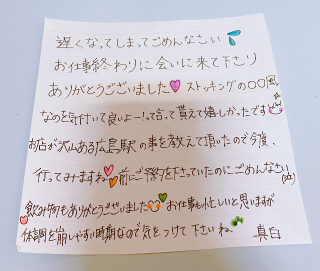 遅くなってしまってごめんなさい
お仕事終わりに会いに来て下さり
ありがとうございました ストッキングの〇〇風
なのを気付いて良いよー!って言って貰えて嬉しかったです
お店が沢山ある広島駅の事を教えて頂いたので今度、
行ってみますね 前にご予約下さっていたのにごめんなさい
飲み物もありがとうございました お仕事も忙しいと思いますが
体調を崩しやすい時期なので気をつけて下さいね 真白